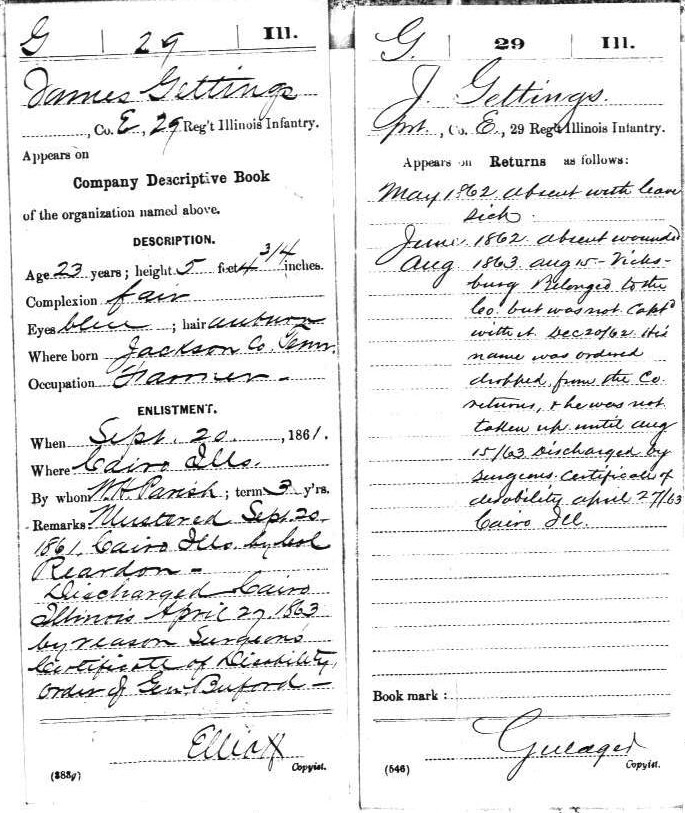 G | 29 | Ill.
James Gettings
, Co. E, 29 Reg't Illinois Infantry.
Appears on
Company Descriptive Book
of the organization named above.
DESCRIPTION.
Age 23 years; height 5 feet 4 3/4 inches.
Complexion fair
Eyes blue; hair auburn
Where born Jackson Co. Tenn.
Occupation Farmer
ENLISTMENT.
When Sept. 20, 1861.
Where Cairo Ills.
By whom W.H. Parish; term 3 y'rs.
Remarks: Mustered Sept. 20
1861, Cairo Ills. by Col
Reardon -
Discharged Cairo
Illinois April 27 1863
by reason Surgeons
Certificate of Disability,
order of Gen. Buford -
Elliott
Copyist.
G. | 29 | Ill.
J. Gettings.
Pvt., Co. E, 29 Reg't Illinois Infantry.
Appears on Returns as follows:
May 1862 absent with leave
sick.
June 1862 absent wounded
Aug 1863 Aug 15 - Vicks-
burg Belonged to the
Co. but was not Capt'd
with it Dec 20/62 His
name was ordered
dropped from the Co.
returns, & he was not
taken up until Aug
15/63 Discharged by
Surgeons Certificate of
disability April 27/63
Cairo Ill.
Book mark:
Copyist.
(546)